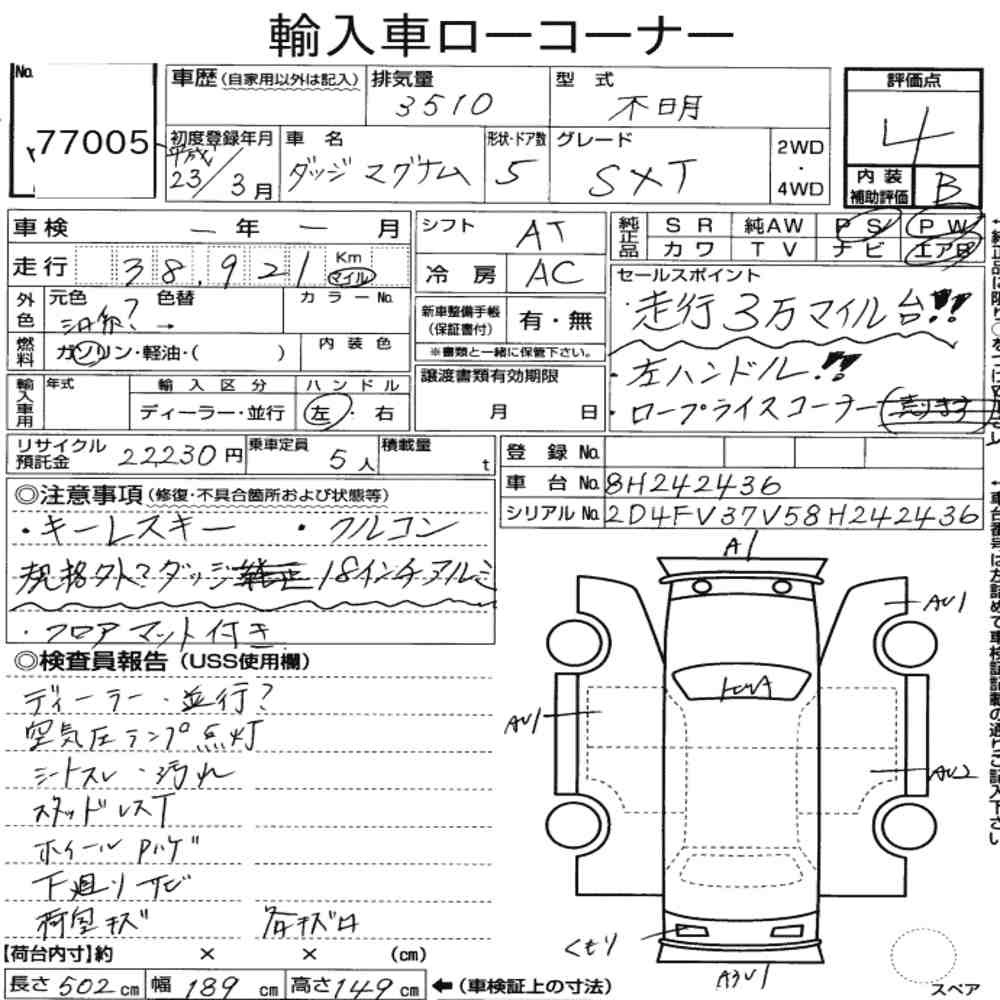 輸入車ローコーナー
No.
77005
車歴(自家用以外は記入)
排気量
3510
型式
不明
評価点
4
初度登録年月
平成
23/3月
車名
ダッジ マグナム
形状・ドア数
5
グレード
SXT
2WD
・
4WD
内装
補助評価
B
車検 ー 年 ー 月
走行 38,921 Km マイル
シフト AT
冷房 AC
純正品
SR 純AW PS PW
カワ TV ナビ エアB
外色
元色 色替 カラーNo.
→
燃料
ガソリン・軽油・( )
内装色
新車整備手帳
(保証書付)
有・無
※書類と一緒に保管下さい。
セールスポイント
・走行3万マイル台!!
・左ハンドル!!
・ロープライスコーナー 売ります
輸入車用
年式
輸入区分
ハンドル
ディーラー・並行
左・右
譲渡書類有効期限
月 日
リサイクル
預託金
22230円
乗車定員
5人
積載量
t
登録No.
車台No. 8H242436
シリアルNo. 2D4FV37V58H242436
◎注意事項(修復・不具合箇所および状態等)
・キーレスキー ・フルコン
規格外トマ ダッジ純正 18インチアルミ
・フロアマット付き
◎検査員報告(USS使用欄)
ディーラー・並行?
空気圧ランプ点灯
シートスレ・汚れ
スタッドレスT
ホイールPハゲ
下廻りサビ
荷室キズ 各キズ口
A1
AU1
AU1
AU2
くもり
スペア
【荷台内寸】約 × × (cm)
長さ502cm 幅189cm 高さ149cm
←(車検証上の寸法)
↑車台番号は左詰めで車検証記載の通りご記入下さい